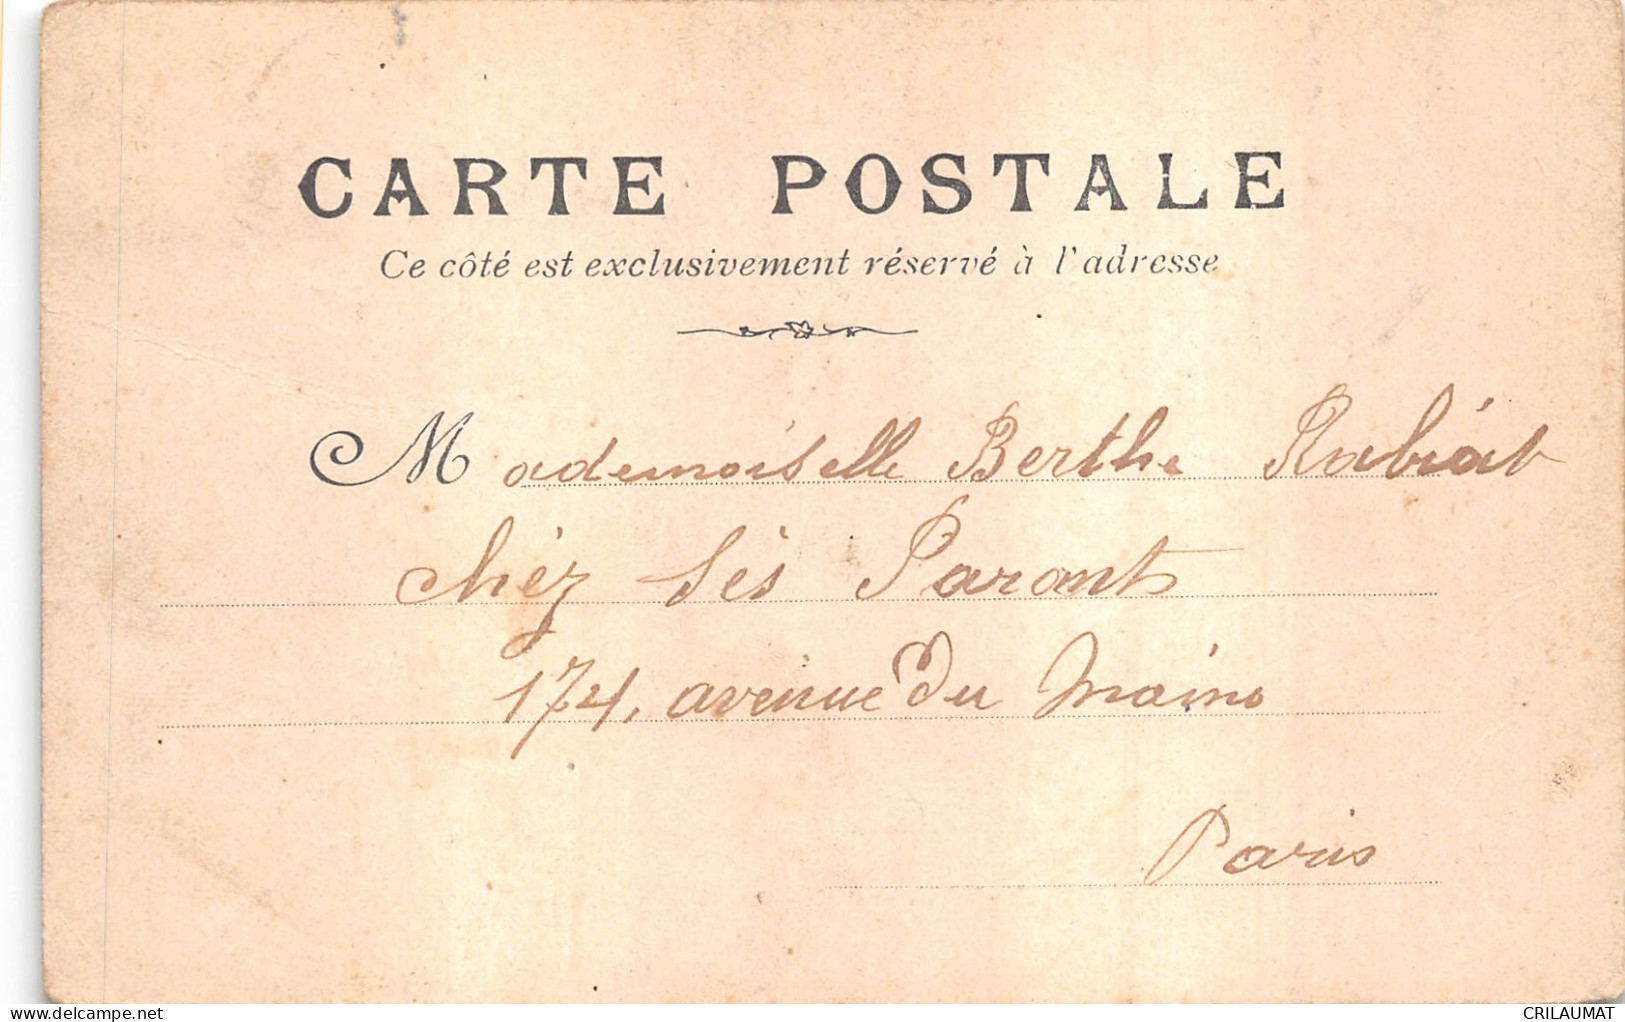 CARTE POSTALE
Ce côté est exclusivement réservé à l'adresse
Mademoiselle Berthe Rabiat
chéz sés Parants
174, avenue du Maine
Paris
www.delcampe.net
CRILAUMAT